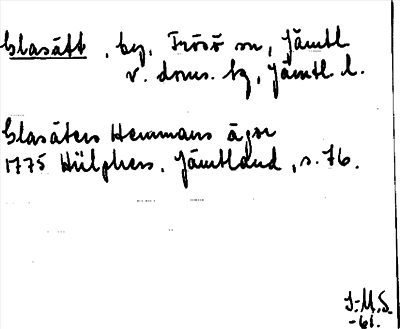 Clasått, by, Frösö sn, Jämtl
v. doms. bg, Jämtl l.
Clasåters Hemmans ägor
1775 Hülphers. Jämtland, s. 76.
J.M.S.
-61.